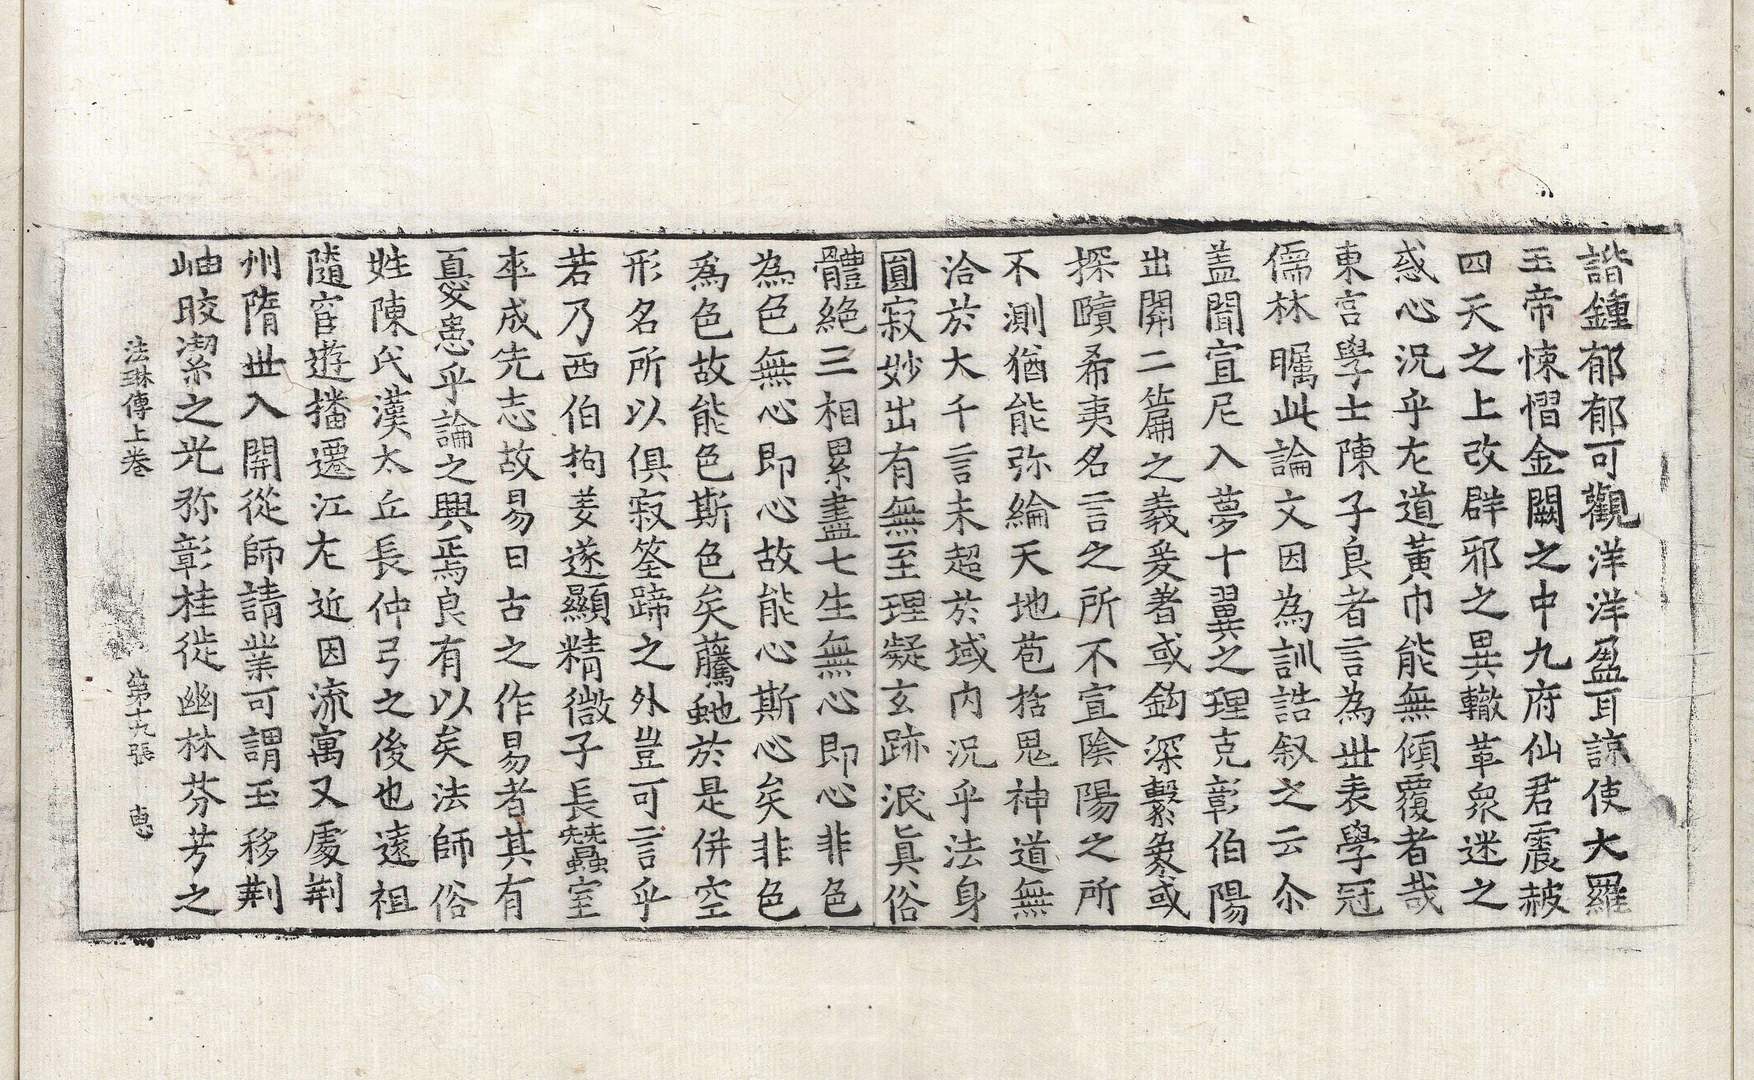 諧鍾郁郁可觀洋洋盈耳諒使大羅
玉帝悚慴金闕之中九府仙君震赦
四天之上改辟邪之異轍革衆迷之
惑心況乎左道黃巾能無傾覆者哉
東宮學士陳子良者言為世表學冠
儒林矚此論文因為訓誥叙之云尒
盖聞宣尼入夢十翼之理克彰伯陽
出關二篇之義爰著或鈎深繫象或
探賾希夷名言之所不宣陰陽之所
不測猶能弥綸天地苞括鬼神道無
洽於大千言未超於域内況乎法身
圓寂妙出有無至理凝玄跡泯真俗
體絶三相累盡七生無心即心非色
為色無心即心故能心斯心矣非色
爲色故能色斯色矣藤虵於是併空
形名所以俱寂筌蹄之外豈可言乎
若乃西伯拘羑遂顯精微子長蠶室
卒成先志故易曰古之作易者其有
憂患乎論之興焉良有以矣法師俗
姓陳氏漢太丘長仲弓之後也遠祖
隨官遊播遷江左近因流寓又處荆
州隋世入關從師請業可謂玉移荆
岫皎潔之光弥彰桂徙幽林芬芳之
法琳傳上卷 第十九張 惠